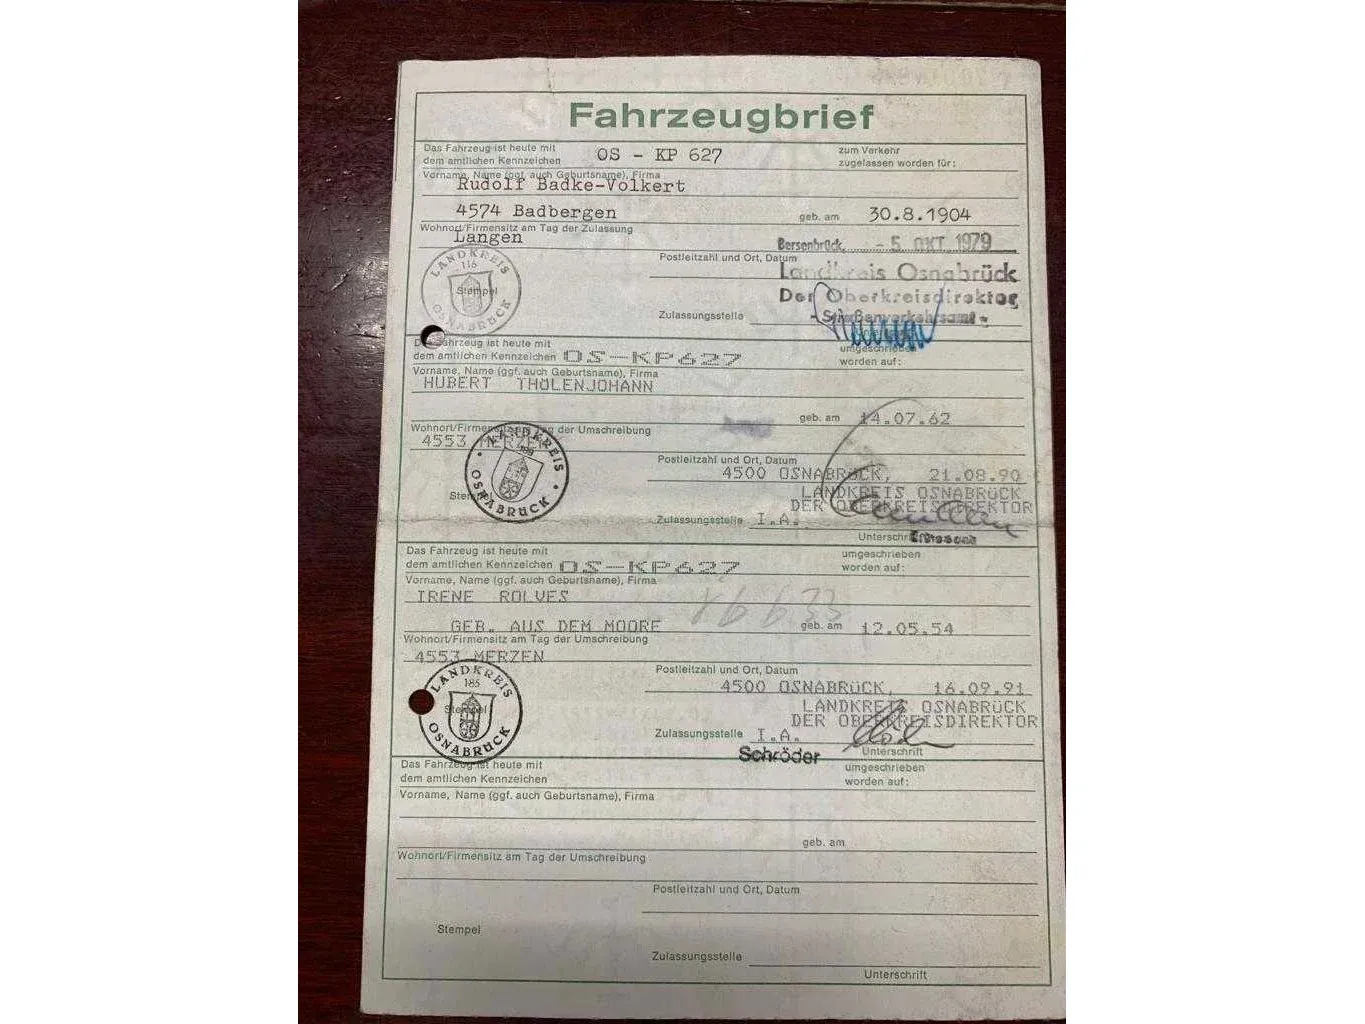 Fahrzeugbrief
Das Fahrzeug ist heute mit
dem amtlichen Kennzeichen OS - KP 627
zum Verkehr
zugelassen worden für:
Vorname, Name (ggf. auch Geburtsname), Firma
Rudolf Badke-Volkert
4574 Badbergen geb. am 30.8.1904
Wohnort/Firmensitz am Tag der Zulassung
Langen
Bersenbrück, - 5. OKT. 1979
Postleitzahl und Ort, Datum
Landkreis Osnabrück
Der Oberkreisdirektor
Zulassungsstelle - Straßenverkehrsamt -
LANDKREIS
116
Stempel
OSNABRÜCK
Das Fahrzeug ist heute mit
dem amtlichen Kennzeichen OS-KP627
umgeschrieben
worden auf:
Vorname, Name (ggf. auch Geburtsname), Firma
HUBERT THOLENJOHANN
geb. am 14.07.62
Wohnort/Firmensitz am Tag der Umschreibung
4553 MERZEN
Postleitzahl und Ort, Datum
4500 OSNABRÜCK, 21.08.90
LANDKREIS OSNABRÜCK
DER OBERKREISDIREKTOR
LANDKREIS
Stempel
OSNABRÜCK
Zulassungsstelle I.A.
Unterschrift
Das Fahrzeug ist heute mit
dem amtlichen Kennzeichen OS-KP627
umgeschrieben
worden auf:
Vorname, Name (ggf. auch Geburtsname), Firma
IRENE ROLVES
GEB. AUS DEM MOORE geb. am 12.05.54
Wohnort/Firmensitz am Tag der Umschreibung
4553 MERZEN
Postleitzahl und Ort, Datum
4500 OSNABRÜCK, 16.09.91
LANDKREIS OSNABRÜCK
DER OBERKREISDIREKTOR
LANDKREIS
185
Stempel
OSNABRÜCK
Zulassungsstelle I.A.
Schröder Unterschrift
Das Fahrzeug ist heute mit
dem amtlichen Kennzeichen
umgeschrieben
worden auf:
Vorname, Name (ggf. auch Geburtsname), Firma
geb. am
Wohnort/Firmensitz am Tag der Umschreibung
Postleitzahl und Ort, Datum
Stempel
Zulassungsstelle
Unterschrift